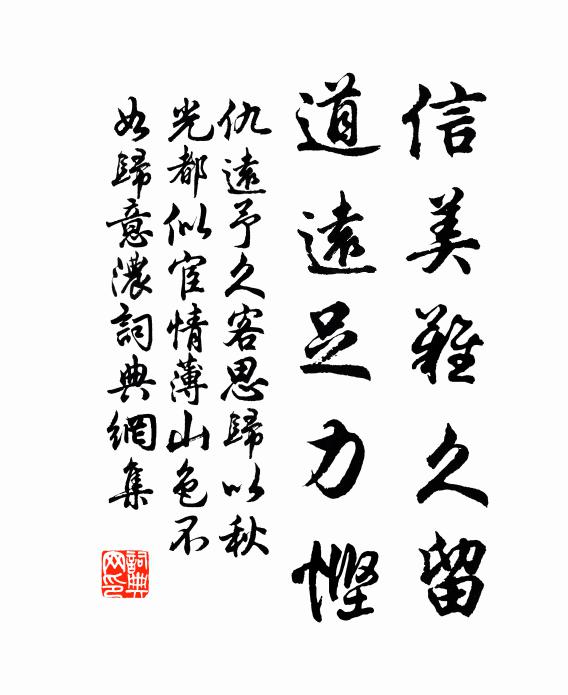 信美難久留
道遠足力慳
仇遠予久客思歸以秋
光都似宦情薄山色不
如歸意濃詞典網集
詞典
网印